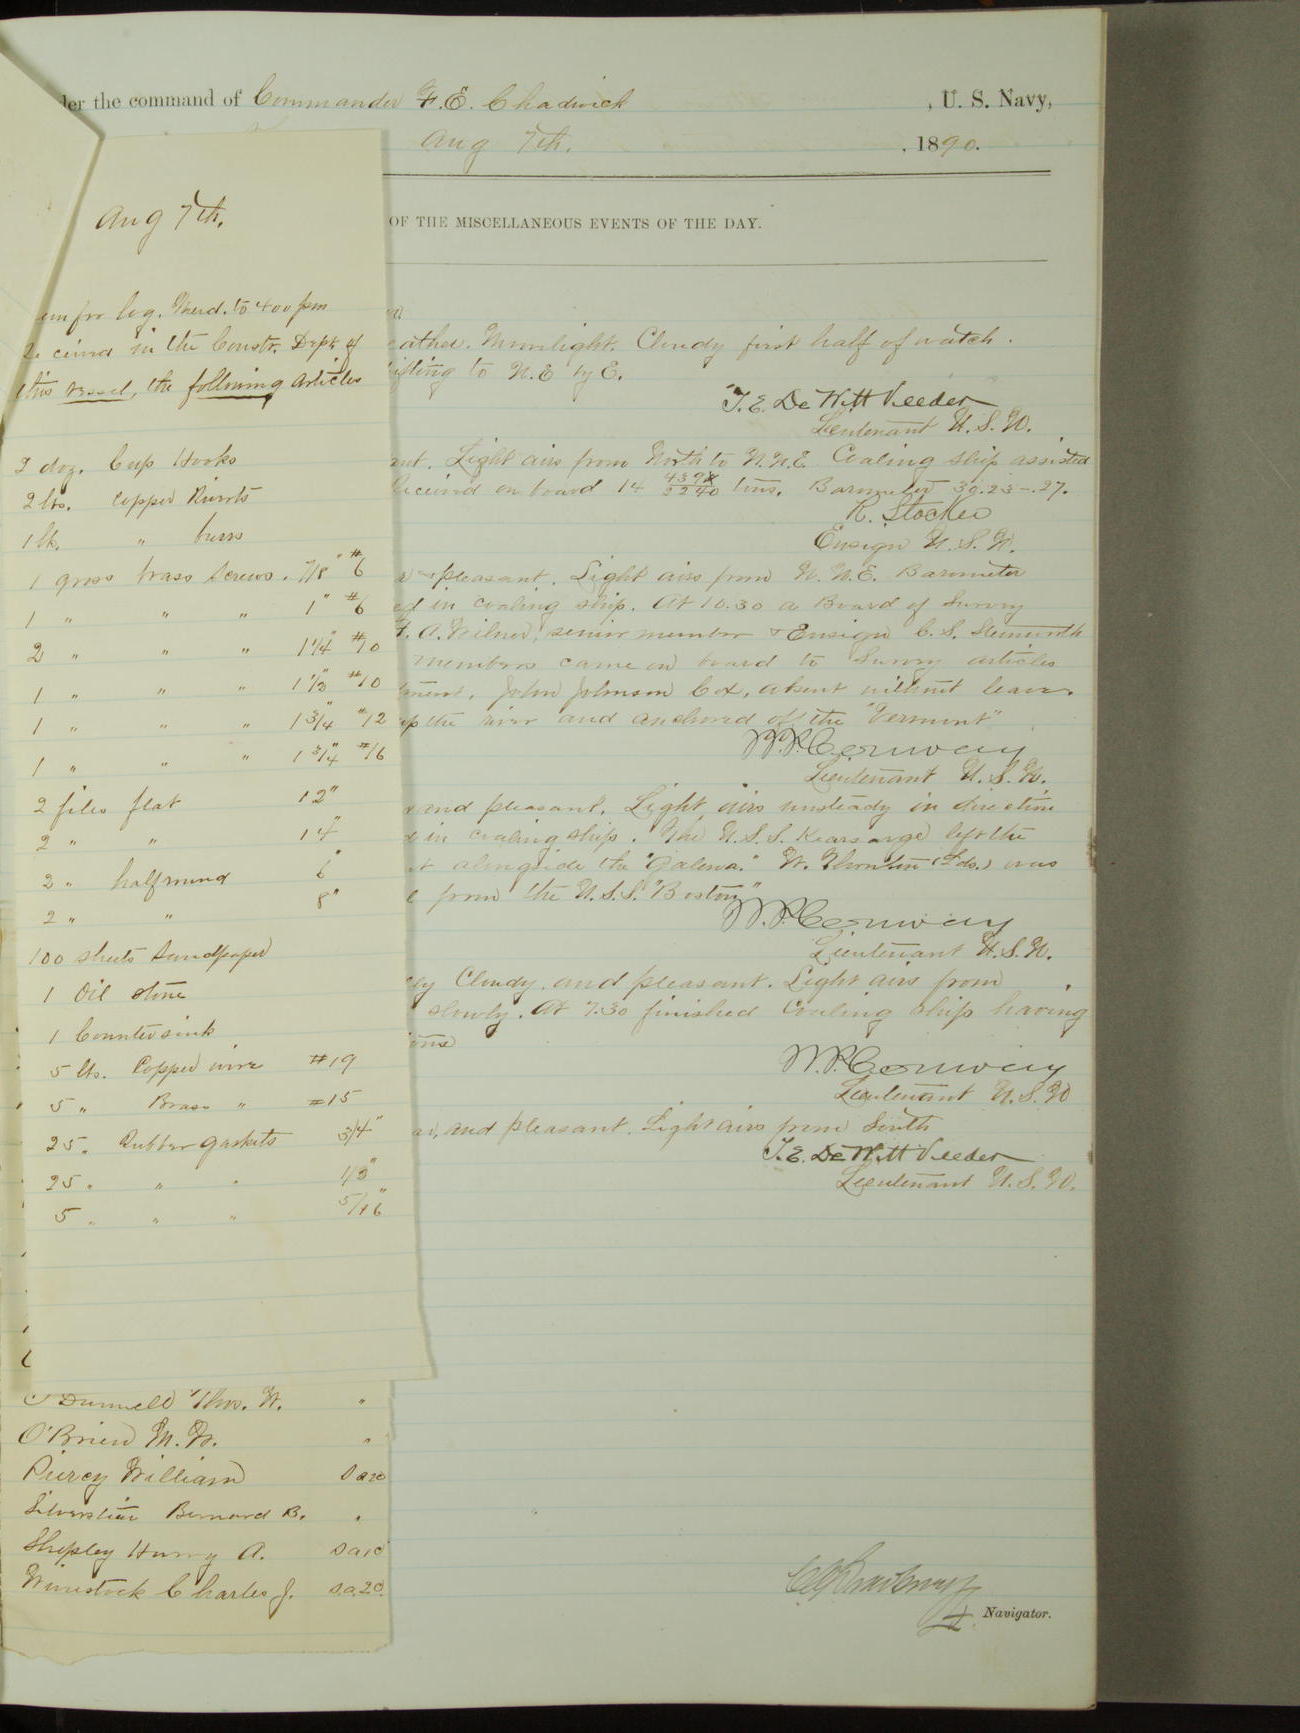 der the command of Commander F. E. Chadwick , U. S. Navy,
Aug 7th. , 1890.
OF THE MISCELLANEOUS EVENTS OF THE DAY.
Aug 7th.
for log. Merd. to 400 pm
Received in the Constr. Dept of
this vessel, the following articles
2 doz. Cup Hooks
2 lbs. Copper Rivets
1 lb. " burrs
1 gross brass screws. 7/8" #6
1 " " " 1" #6
2 " " " 1 1/4" #10
1 " " " 1 1/2" #10
1 " " " 1 3/4" #12
1 " " " 1 3/4" #16
2 files flat 12"
2 " " 14"
2 " halfround 6"
2 " " 8"
100 sheets Sandpaper
1 Oil stone
1 Countersink
5 lbs. Copper wire #19
5 " Brass " #15
25 . Rubber gaskets 3/4"
25 . " " 1/2"
5 " " " 5/16"
O'Dunnell Thos. W. "
O'Brien M. W. "
Piercy William
Silverstein Bernard B. "
Shipley Harry A.
Winestock Charles J. S.a.20.
eather. Moonlight. Cloudy first half of watch.
ifting to N.E by E.
T. E. DeWitt Veeder
Lieutenant U. S. N.
ant. Light airs from North to N.N.E. Coaling ship assisted
Received on board 14 tons. Barometer 30.23-.27.
R. Stocker
Ensign U. S. N.
r & pleasant. Light airs from N. N. E. Barometer
ed in coaling ship. At 10.30 a Board of Survey
F. A. Wilner, senior member & Ensign C. S.
members came on board to Survey articles
tment. John Johnson Cox, absent without leave.
up the river and anchored off the "Vermont"
W. P. Conway
Lieutenant U. S. N.
r and pleasant. Light airs unsteady in direction
d in coaling ship. The U.S.S. Kearsarge left the
t alongside the "Galena." W. Thornton (Lds.) was
e from the U.S.S. "Boston"
W. P. Conway
Lieutenant U. S. N.
ly Cloudy and pleasant. Light airs from
slowly. At 7.30 finished Coaling ship having
tons
W. P. Conway
Lieutenant U. S. N
ar, and pleasant. Light airs from South
T. E. DeWitt Veeder
Lieutenant U. S. N.
Navigator.